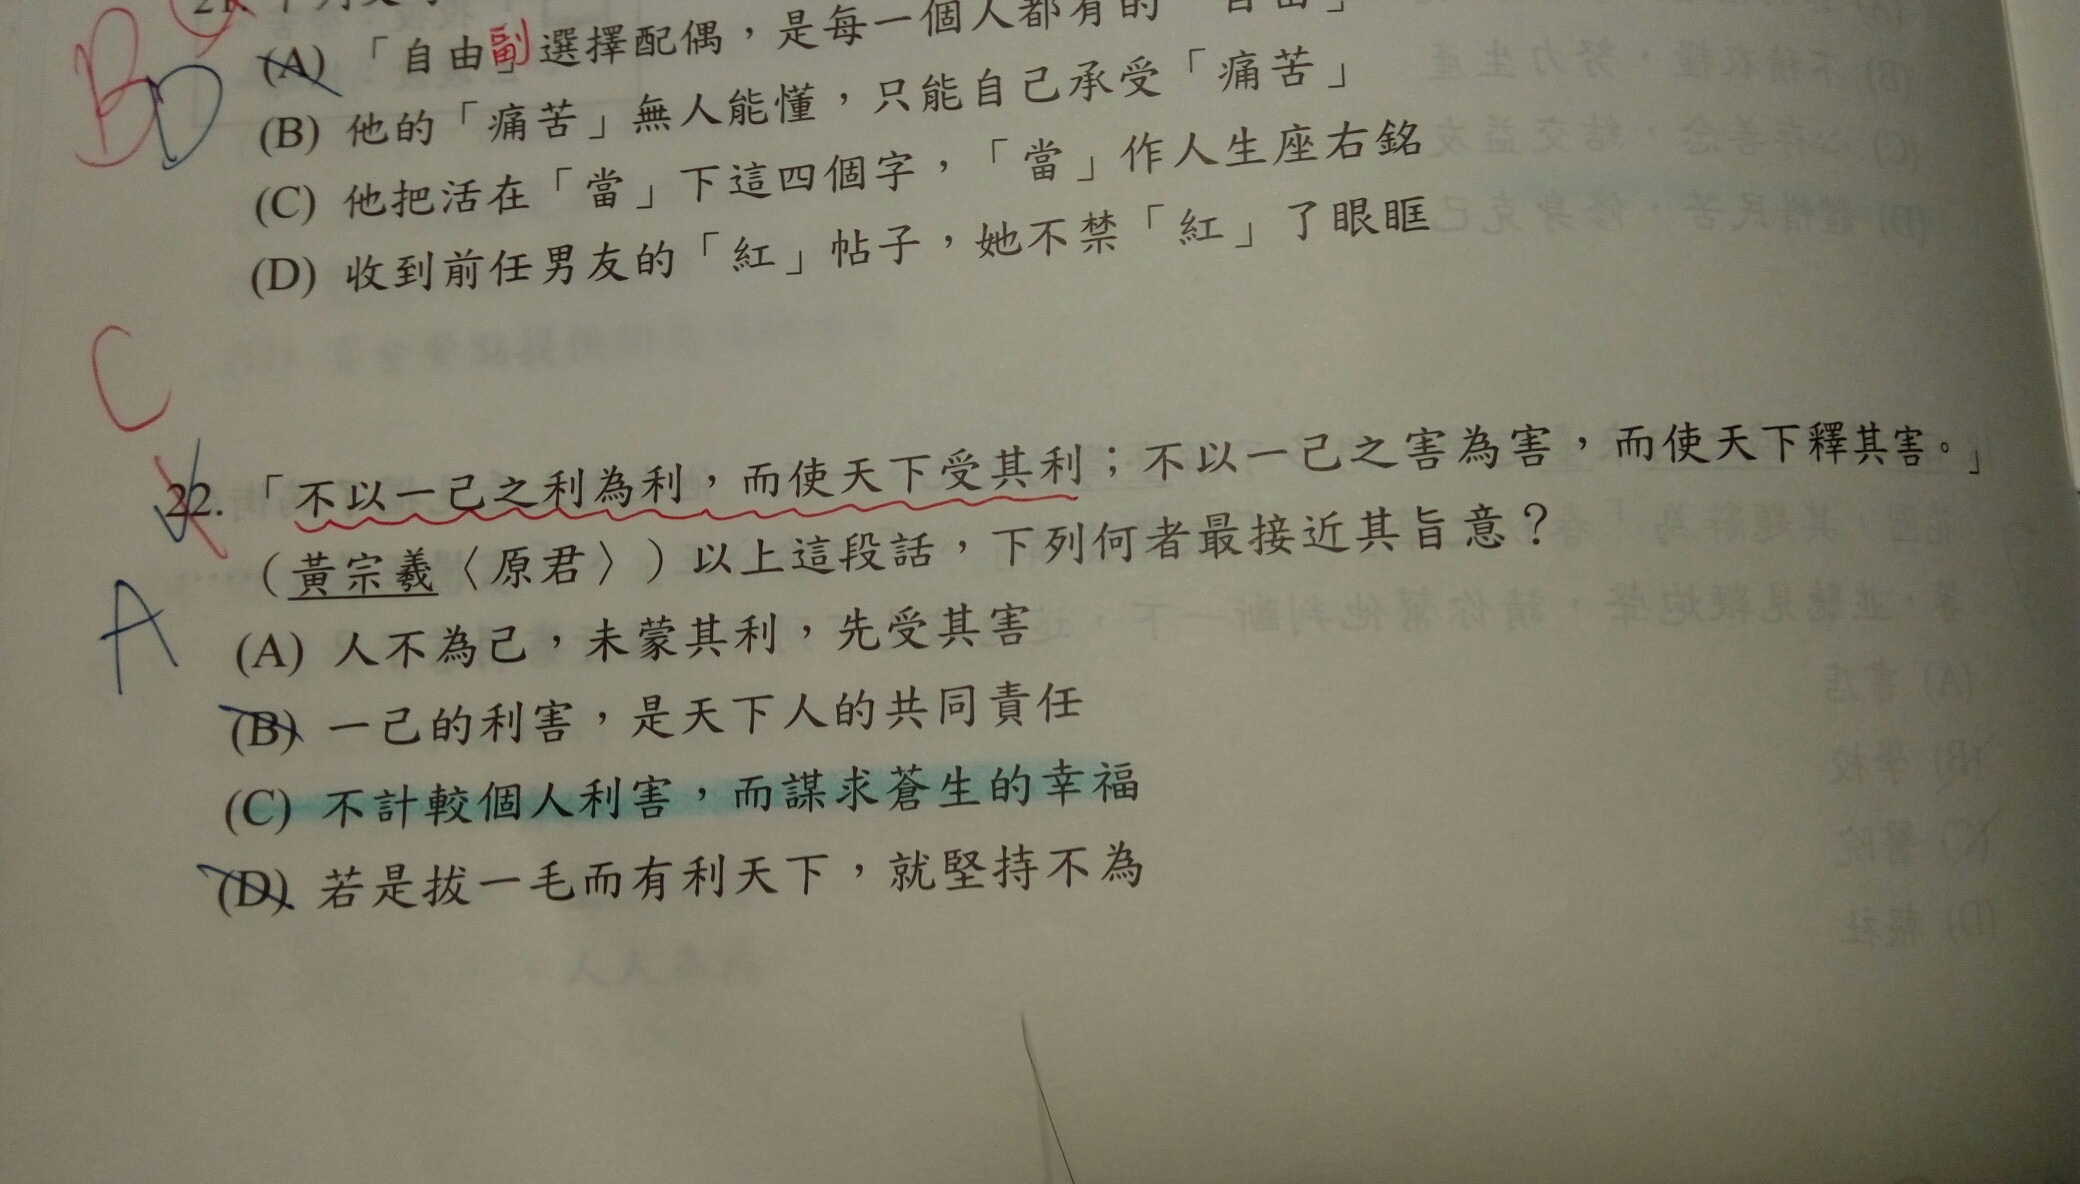 (A) 「自由」副選擇配偶，是每一個人都有的「自由」
(B) 他的「痛苦」無人能懂，只能自己承受「痛苦」
(C) 他把活在「當」下這四個字，「當」作人生座右銘
(D) 收到前任男友的「紅」帖子，她不禁「紅」了眼眶
B
D
C
22. 「不以一己之利為利，而使天下受其利；不以一己之害為害，而使天下釋其害。」
（黃宗羲〈原君〉）以上這段話，下列何者最接近其旨意？
A
(A) 人不為己，未蒙其利，先受其害
(B) 一己的利害，是天下人的共同責任
(C) 不計較個人利害，而謀求蒼生的幸福
(D) 若是拔一毛而有利天下，就堅持不為